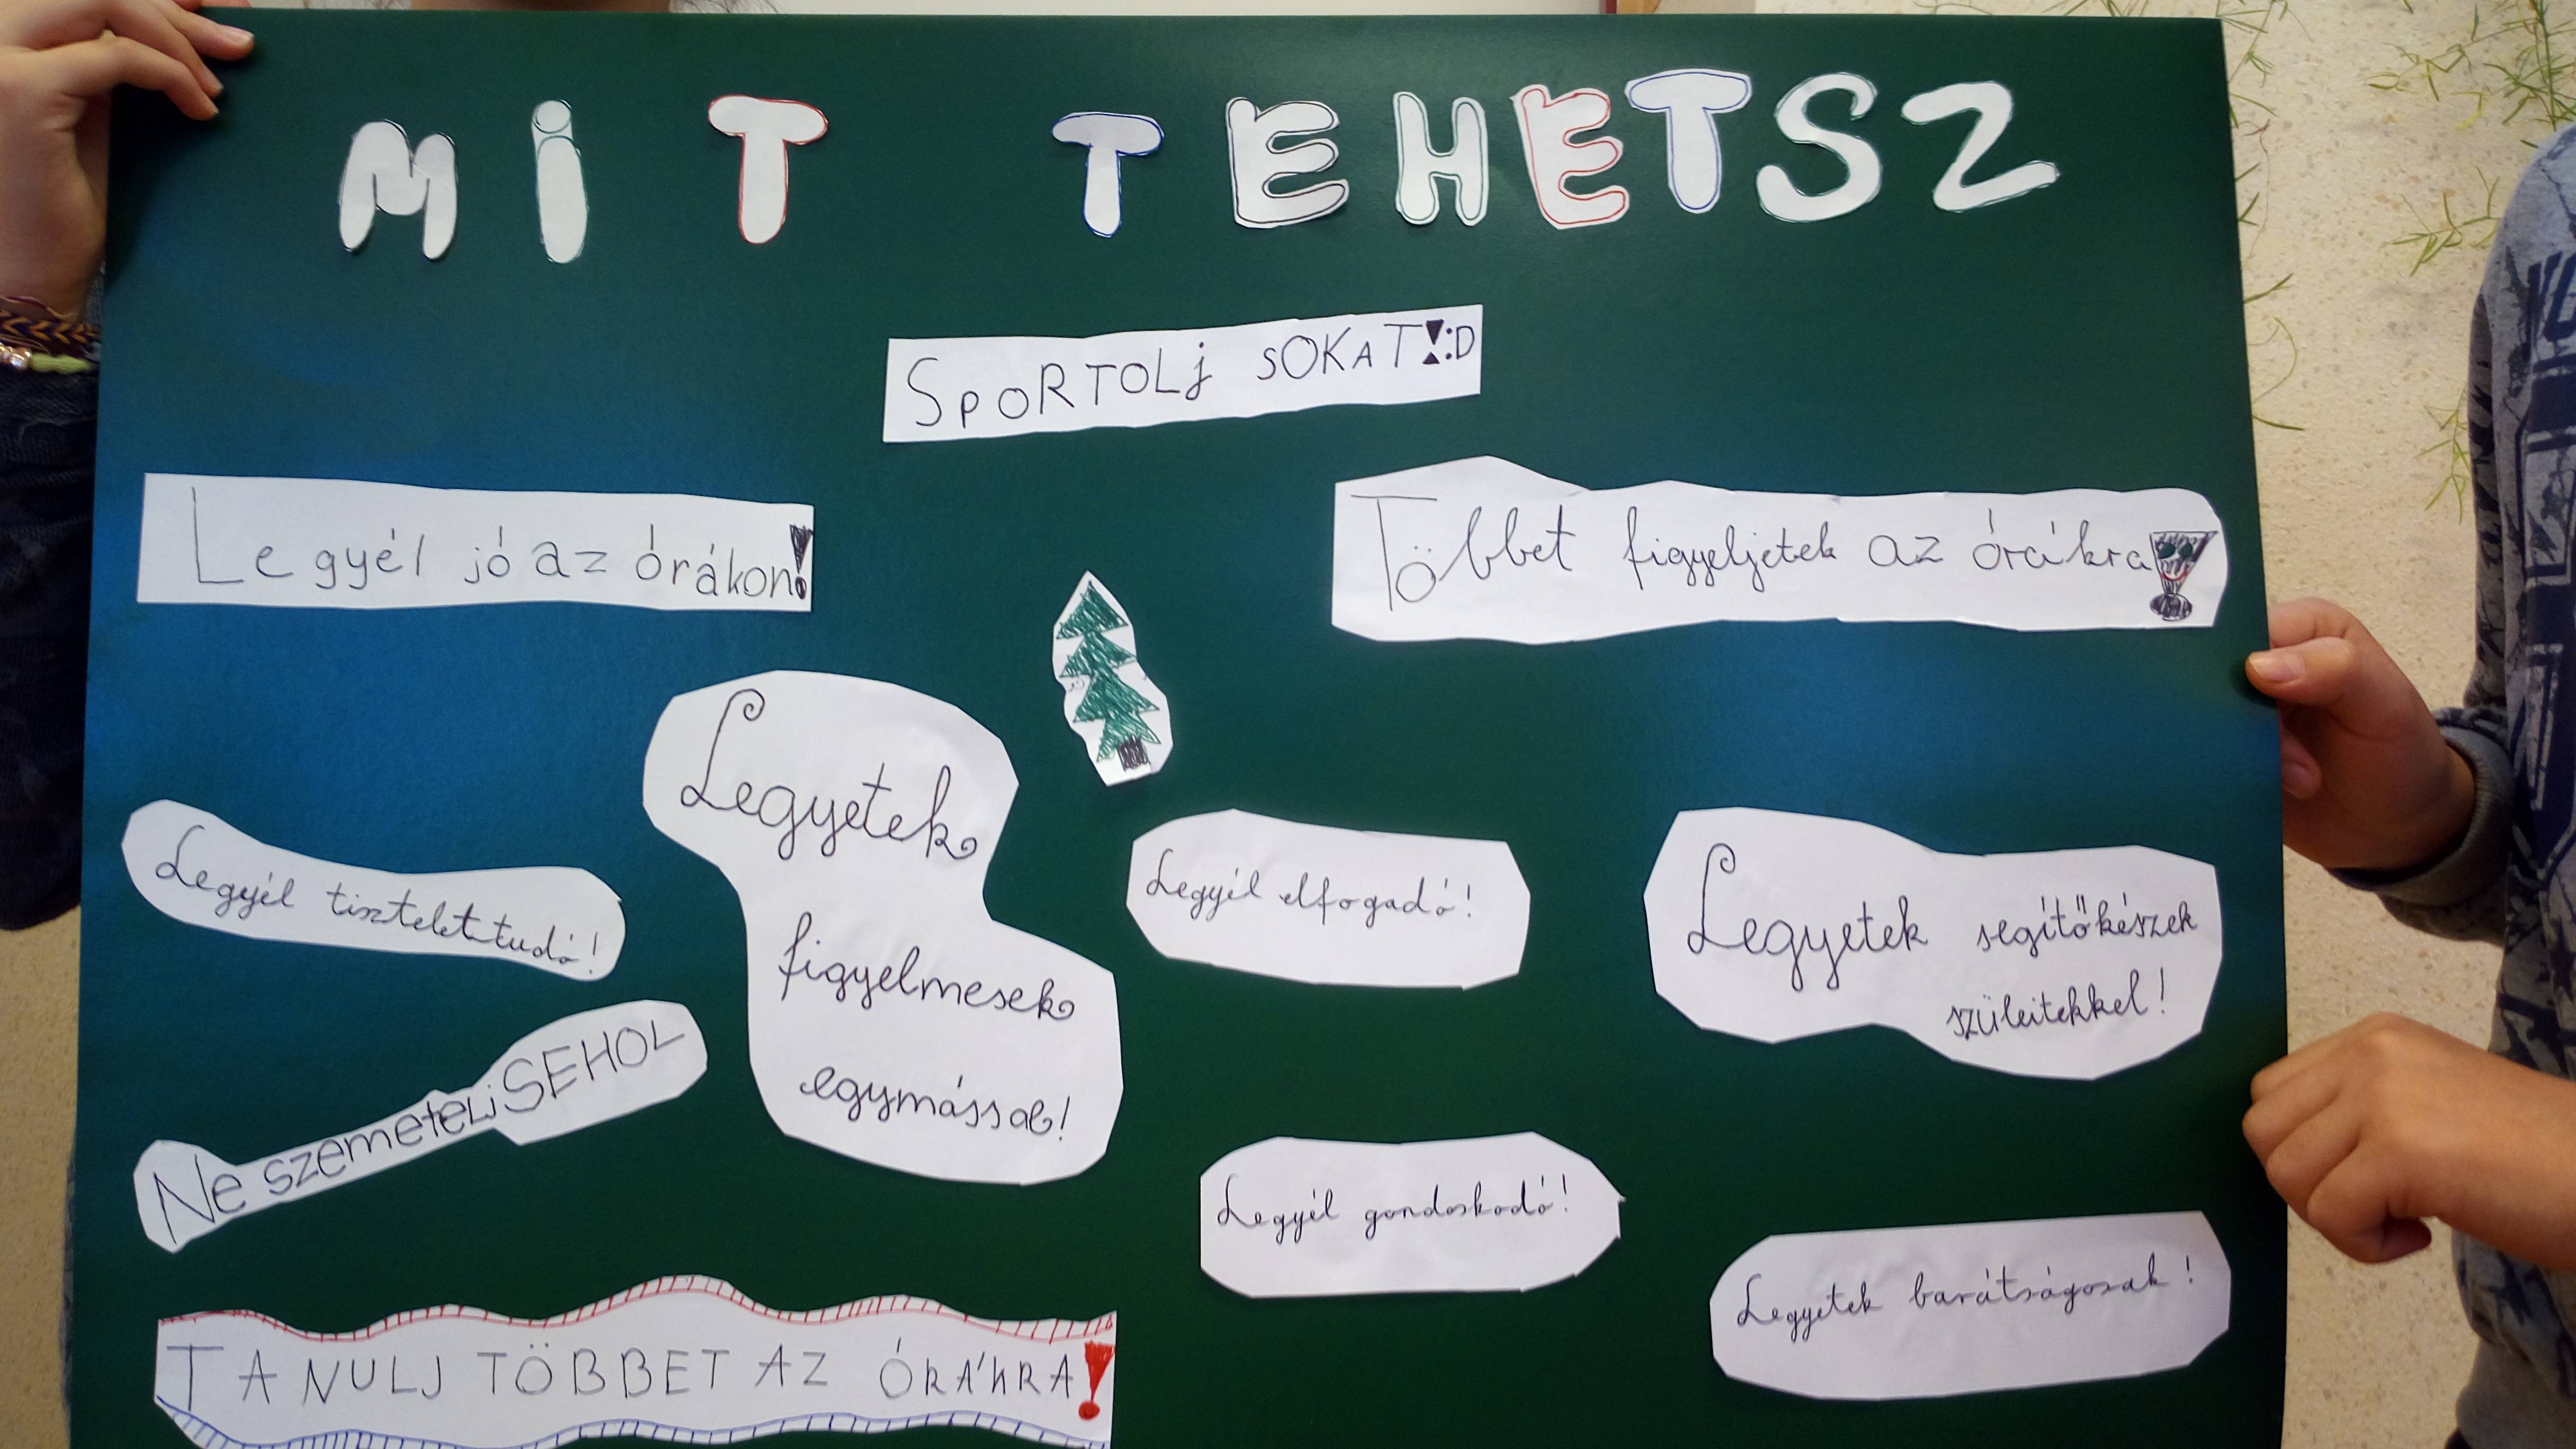 MiT TEHETSZ
SpoRTOLj sOKAT!:D
Legyél jó az órákon!
Többet figyeljetek az órákra!
Legyetek
figyelmesek
egymással!
Legyél tisztelettudó!
Legyél elfogadó!
Legyetek segítőkészek
szüleitekkel!
Ne szemetelj SEHOL
Legyél gondoskodó!
Legyetek barátságosak!
TANULJ TÖBBET AZ ÓRÁKRA!